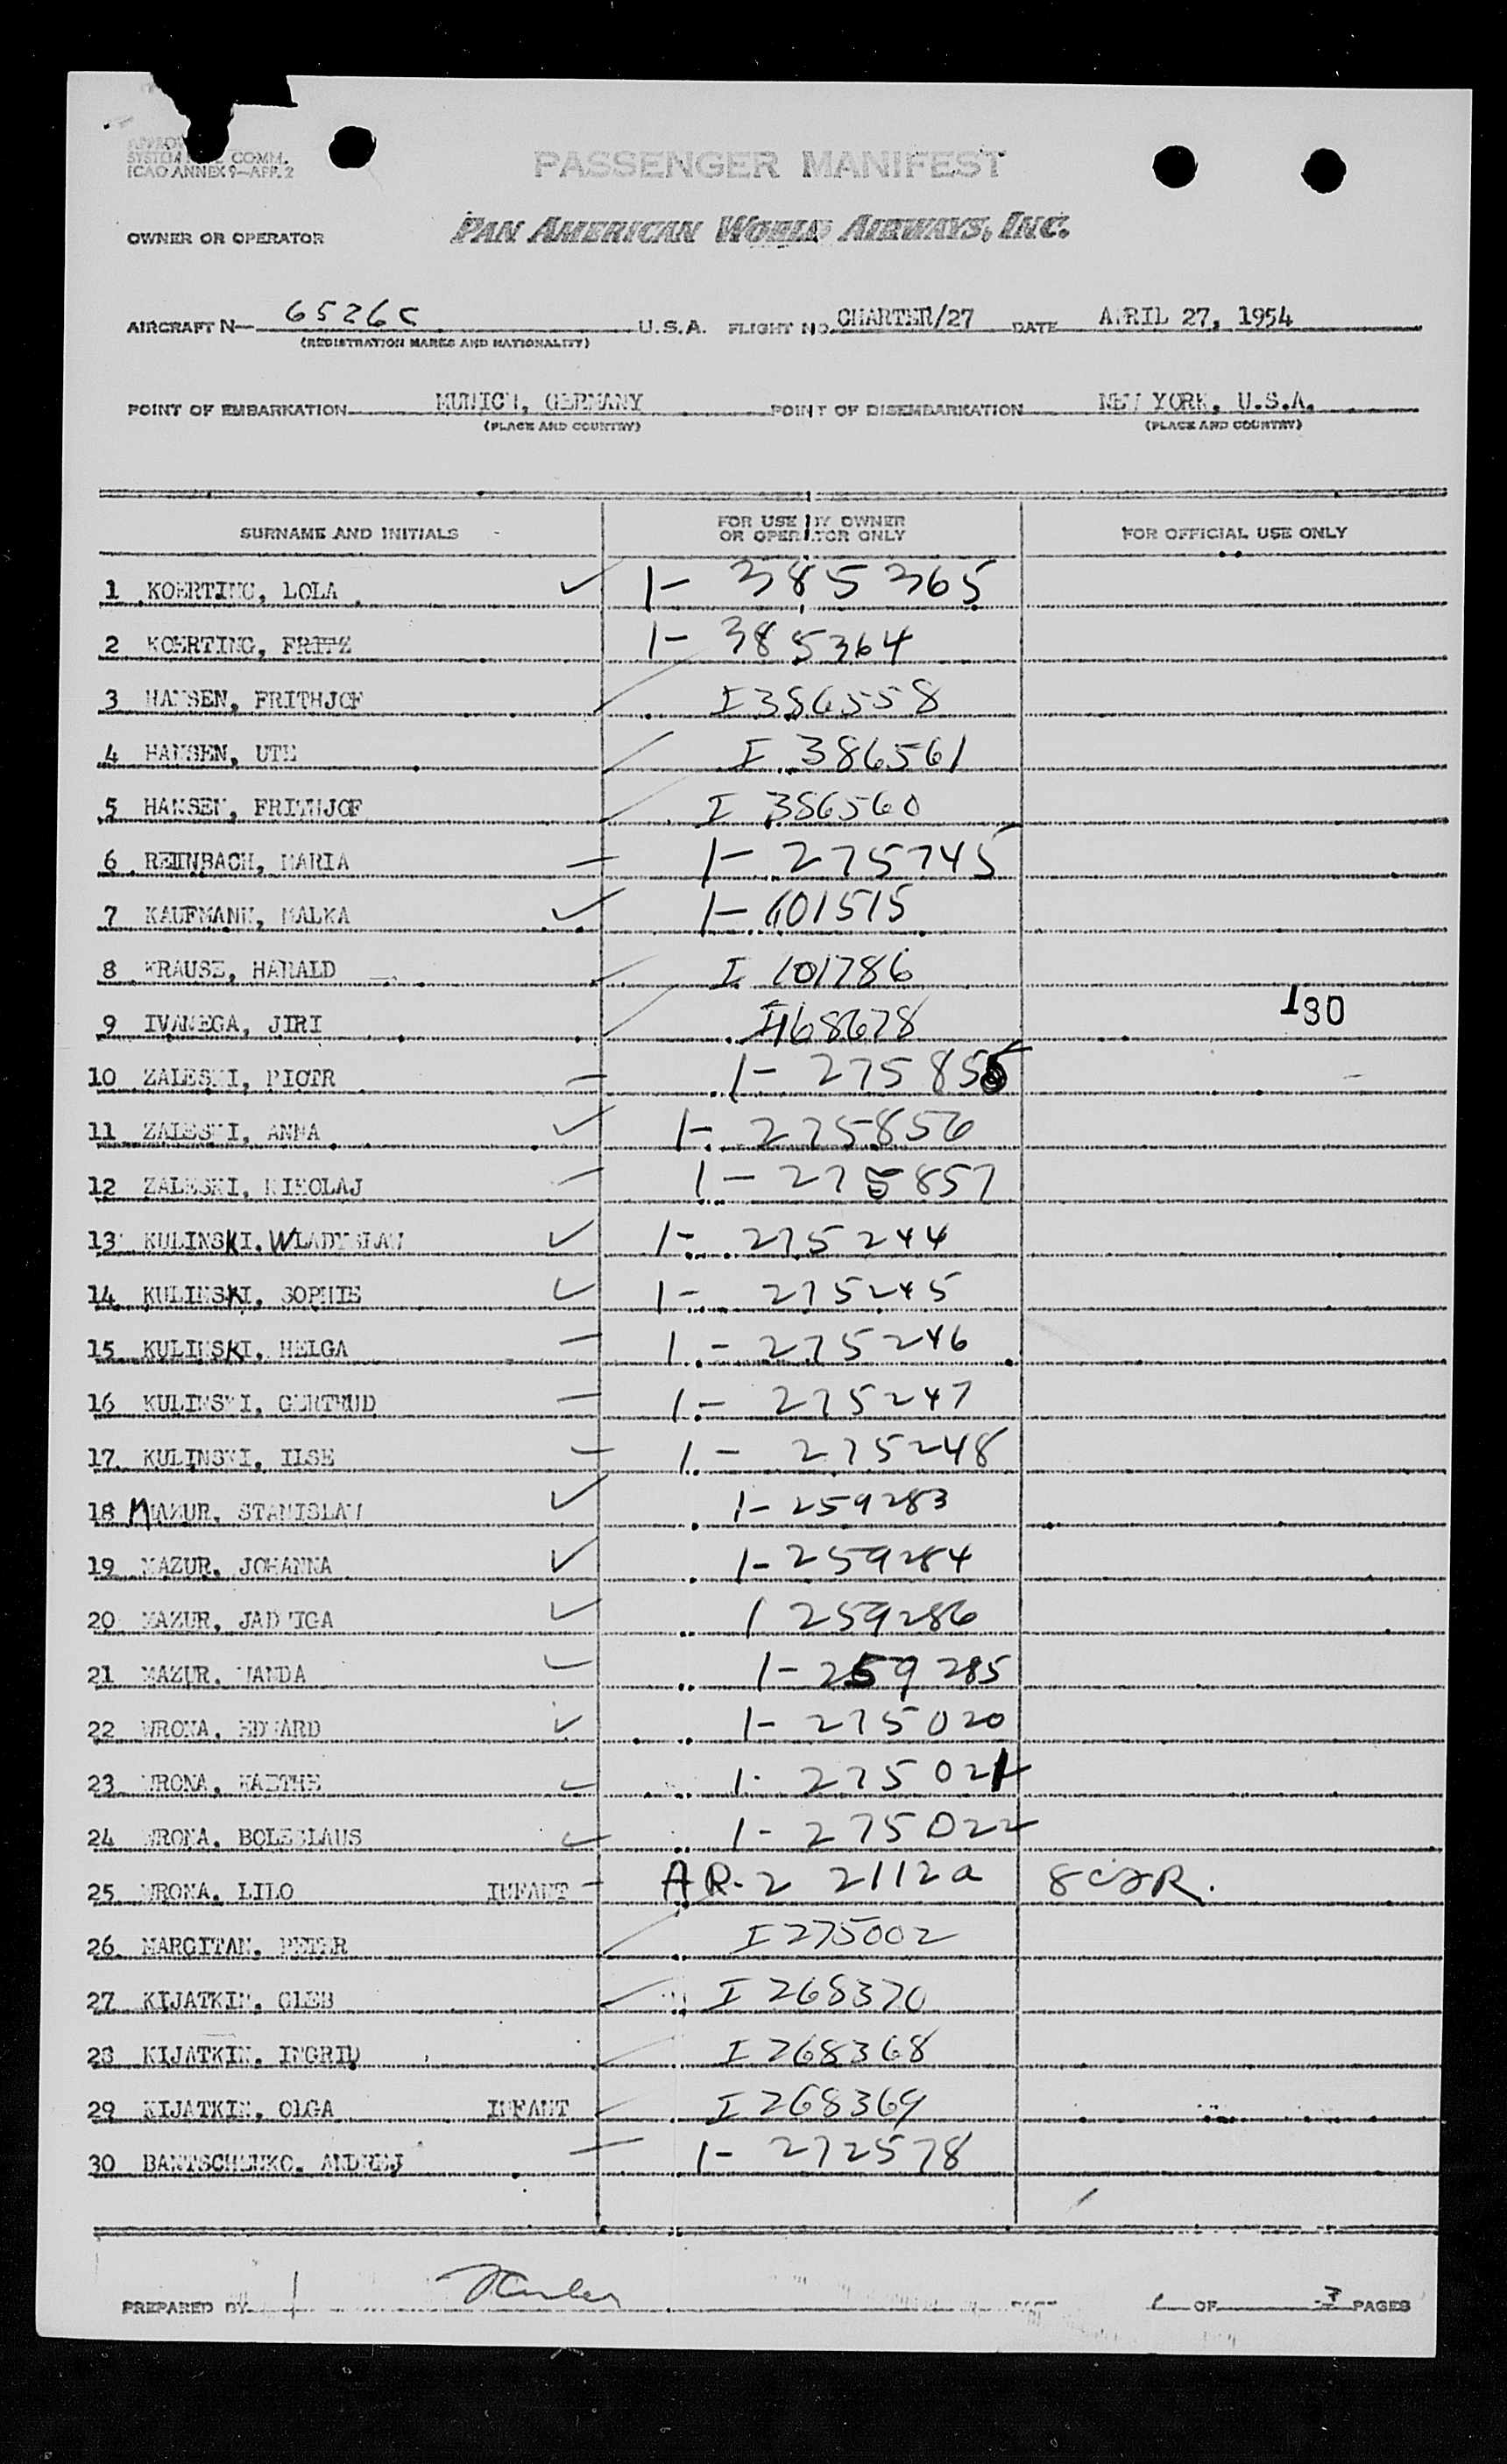 SYSTEM COMM.
ICAO ANNEX 9—APP. 2
PASSENGER MANIFEST
OWNER OR OPERATOR PAN AMERICAN WORLD AIRWAYS, INC.
AIRCRAFT N— 6526C U.S.A. FLIGHT NO. CHARTER/27 DATE APRIL 27, 1954
(REGISTRATION MARKS AND NATIONALITY)
POINT OF EMBARKATION MUNICH, GERMANY POINT OF DISEMBARKATION NEW YORK, U.S.A.
(PLACE AND COUNTRY) (PLACE AND COUNTRY)
SURNAME AND INITIALS FOR USE BY OWNER OR OPERATOR ONLY FOR OFFICIAL USE ONLY
1 KOERTING, LOLA ✓ 1- 385365
2 KOERTING, FRITZ 1- 385364
3 HANSEN, FRITHJOF I 386558
4 HANSEN, UTE I 386561
5 HANSEN, FRITHJOF I 386560
6 REINBACH, MARIA 1- 275745
7 KAUFMANN, MALKA ✓ 1- 101515
8 KRAUSE, HARALD I 101786
9 IVANEGA, JIRI I 168678 130
10 ZALESKI, PIOTR 1- 275855
11 ZALESKI, ANNA ✓ 1- 275856
12 ZALESKI, NIKOLAJ 1- 275857
13 KULINSKI, WLADYSLAW ✓ 1- 275244
14 KULINSKI, SOPHIE ✓ 1- 275245
15 KULINSKI, HELGA 1- 275246
16 KULINSKI, GERTRUD 1- 275247
17 KULINSKI, ILSE 1- 275248
18 MAZUR, STANISLAW ✓ 1- 259283
19 MAZUR, JOHANNA ✓ 1- 259284
20 MAZUR, JADWIGA ✓ 1 259286
21 MAZUR, WANDA ✓ 1- 259285
22 WRONA, EDWARD ✓ 1- 275020
23 WRONA, KAETHE ✓ 1- 275021
24 WRONA, BOLESLAUS ✓ 1- 275022
25 WRONA, LILO INFANT AR-2 2112a
26 MARGITAN, PETER I 275002
27 KIJATKIN, GLEB I 268370
28 KIJATKIN, INGRID I 268368
29 KIJATKIN, OLGA INFANT I 268369
30 BANTSCHENKO, ANDREJ 1- 272578
PREPARED BY 1 OF 3 PAGES